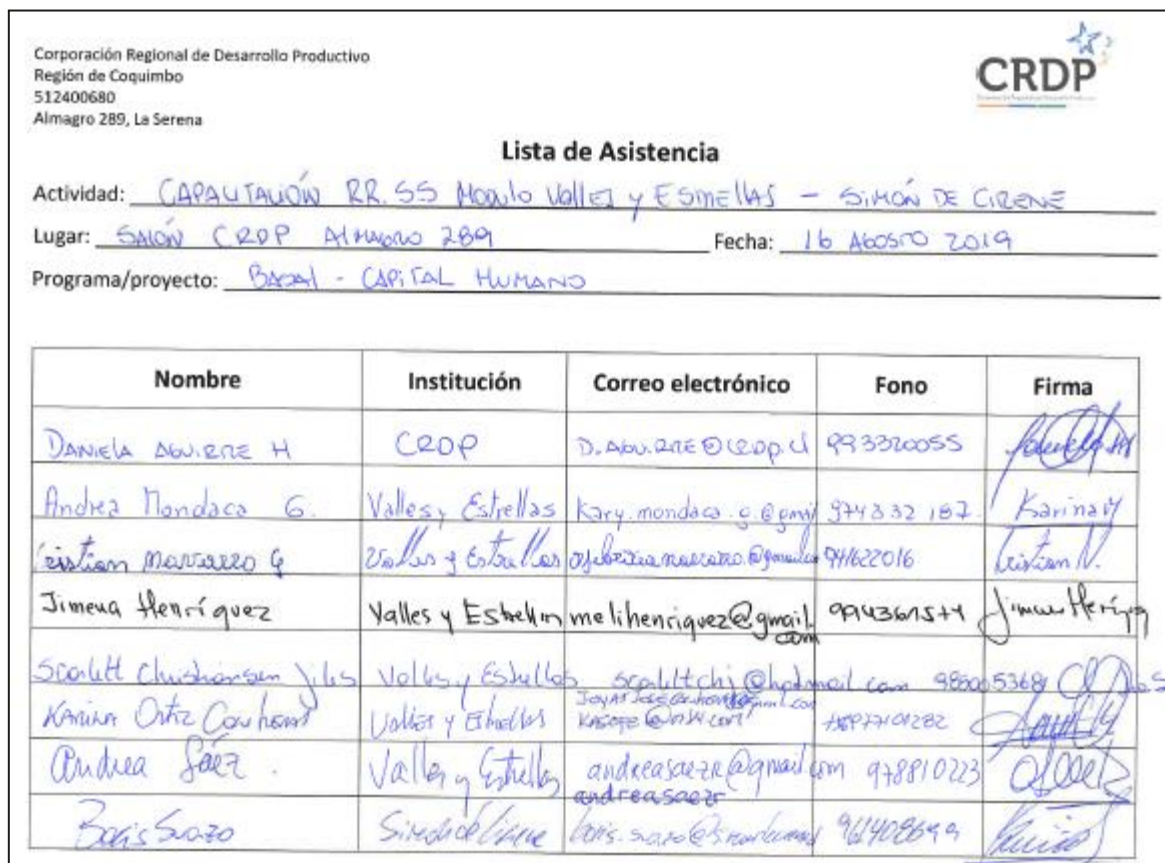 Corporación Regional de Desarrollo Productivo
Región de Coquimbo
512400680
Almagro 289, La Serena
CRDP
Lista de Asistencia
Actividad: CAPACITACIÓN RR.SS Modulo Valles y Estrellas - SIMÓN DE CIRENE
Lugar: SALÓN CRDP Almagro 289 Fecha: 16 Agosto 2019
Programa/proyecto: BASAL - CAPITAL HUMANO
Nombre Institución Correo electrónico Fono Firma
DANIELA AGUIRRE H CRDP D.AGUIRRE@CRDP.Cl 993320055
Andrea Mondaca G. Valles y Estrellas Kary.mondaca.g.@gmail 974332187. Karina
Cristian Navarro G Valles y Estrellas 941622016 Cristian N.
Jimena Henríquez Valles y Estrellas melihenriquez@gmail.com Jimena
Scarlett Christiansen Jiles Valles y Estrellas scarlettchj@hotmail.com
Karina Ortiz Valles y Estrellas
Andrea Sáez. Valles y Estrellas andreasaezr@gmail.com 978810223
andreasaezr
Boris Suazo 961408699